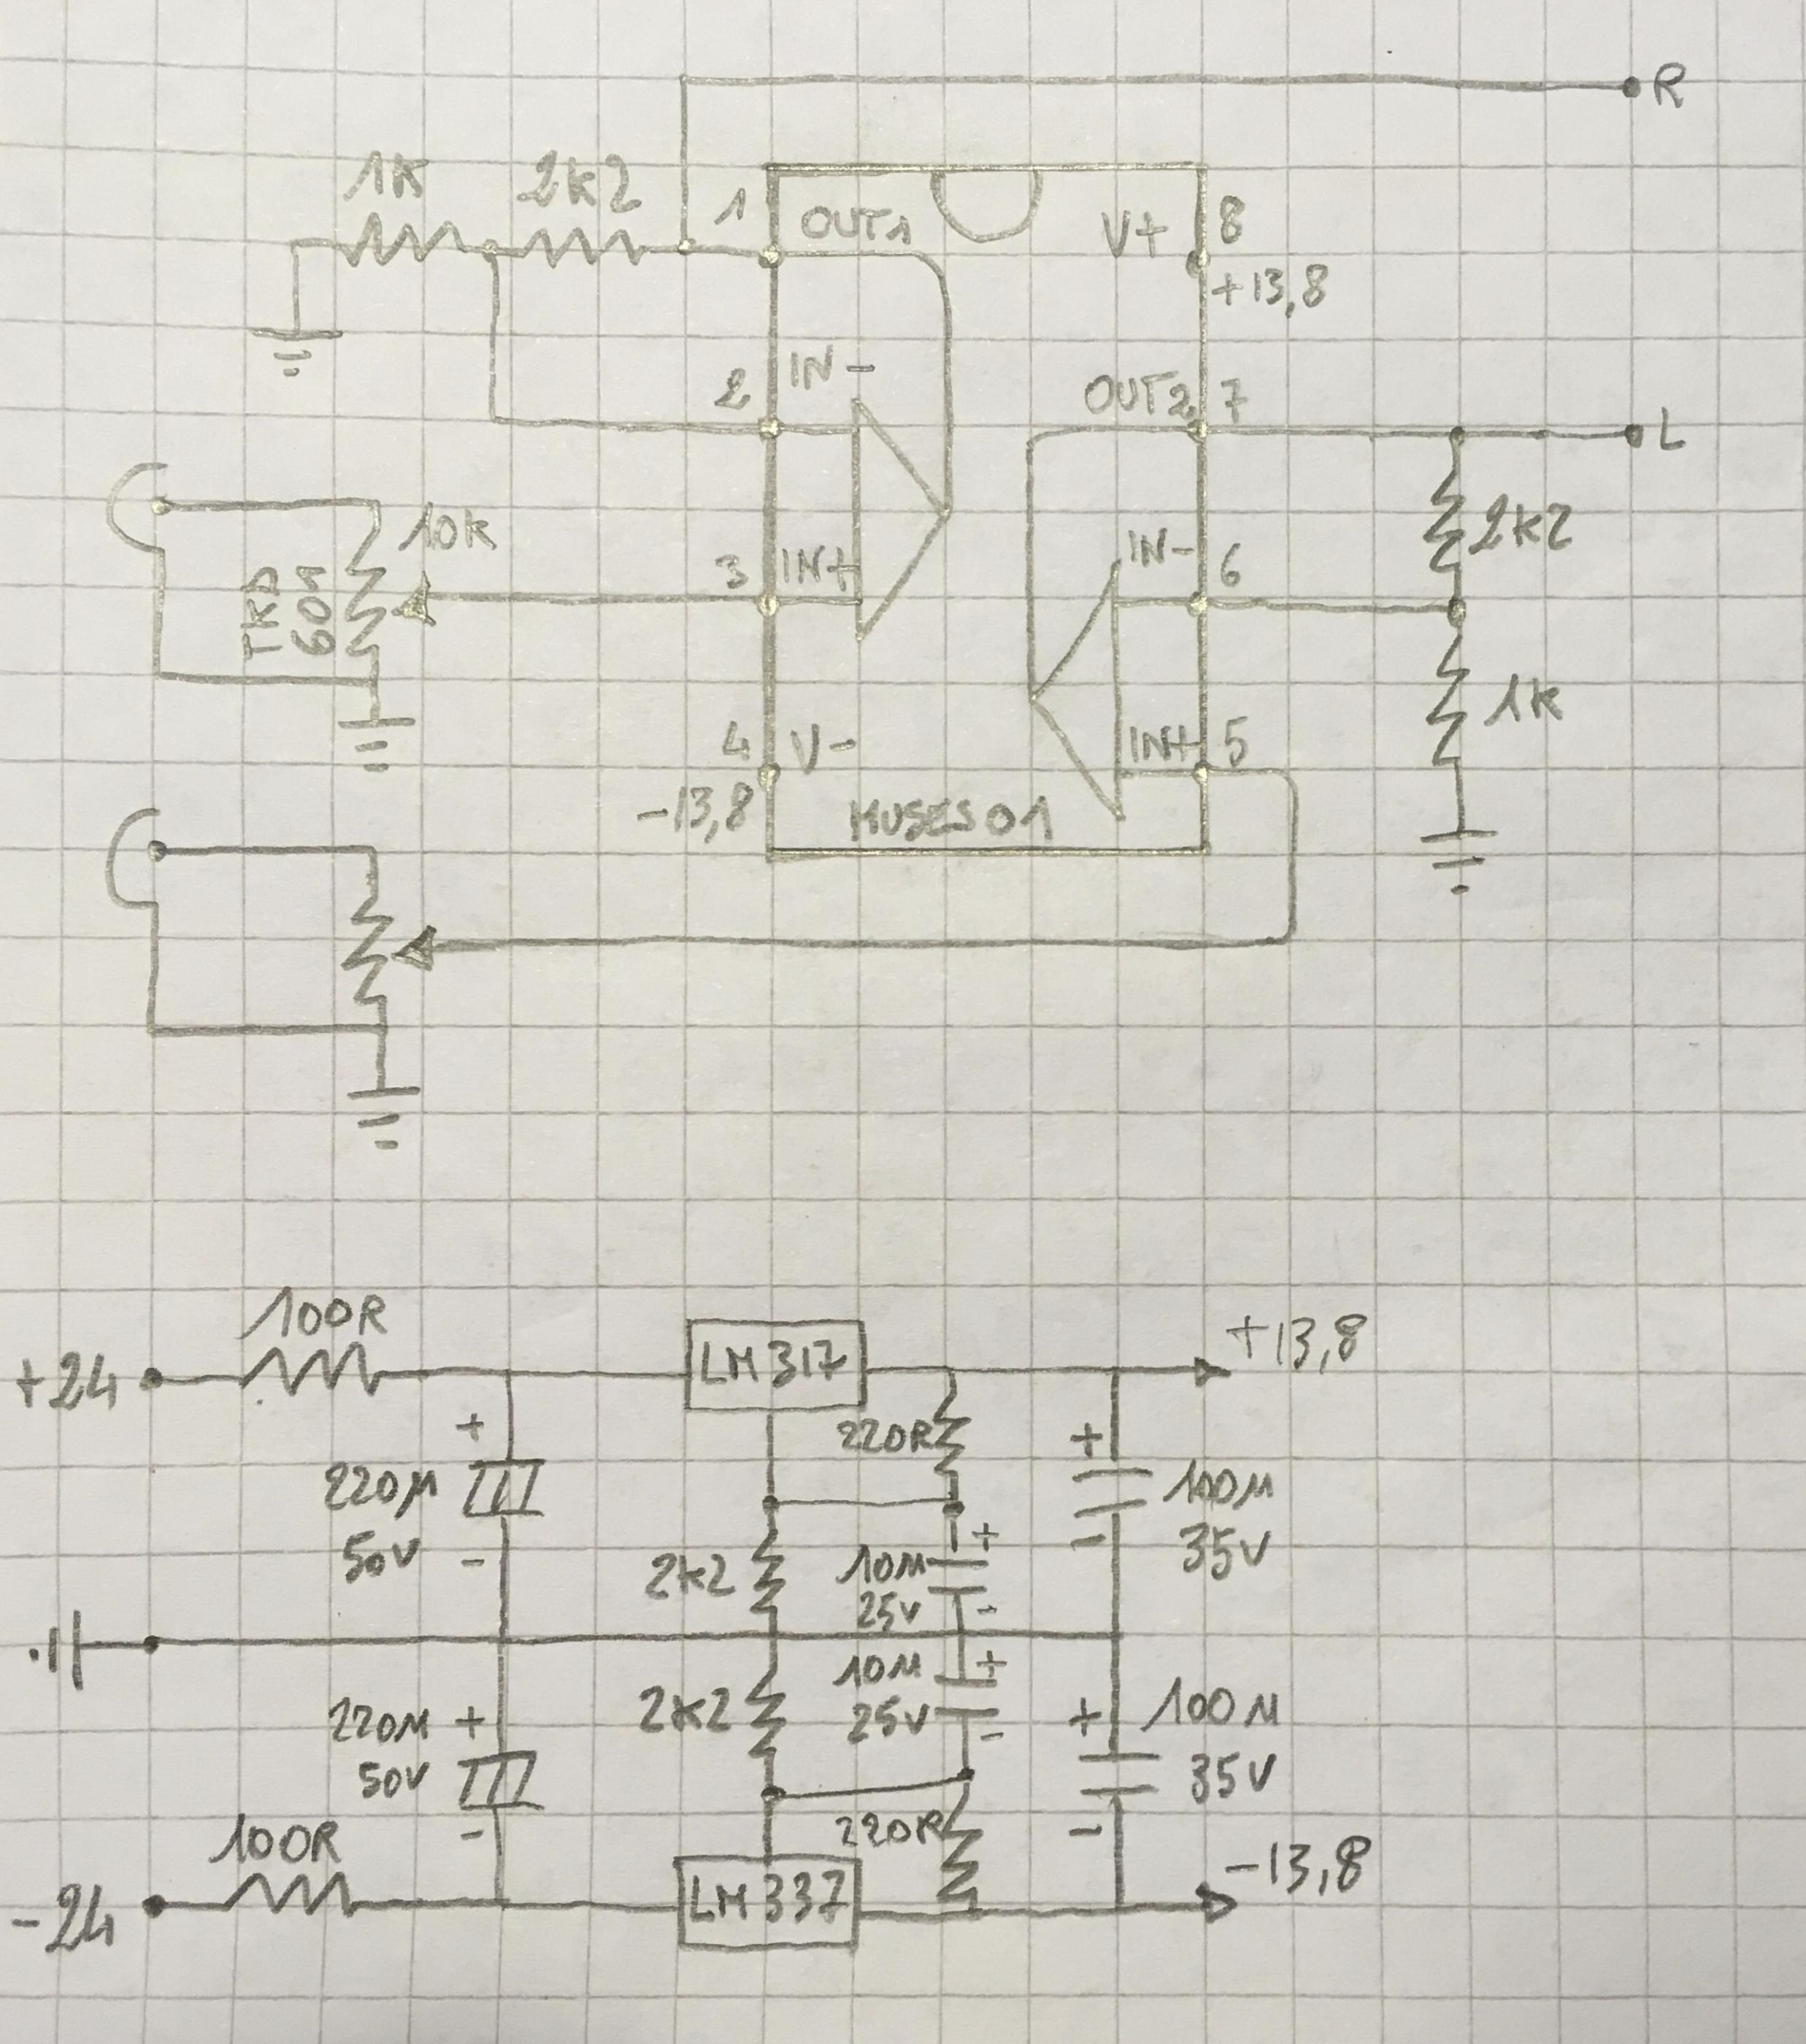 R
1K 2K2
1 OUT1 V+ 8
+13,8
2 IN-
OUT2 7
L
10K
TKD
601
3 IN+
IN- 6
2K2
4 V-
-13,8
IN+ 5
1K
MUSES01
100R
+24
LM317
+13,8
+
220R
+
220M
50V
-
100M
35V
-
2K2
+
10M
25V
-
10M
25V
+
-
2K2
220M
50V
+
-
+
100M
35V
-
100R
220R
-24
LM337
-13,8